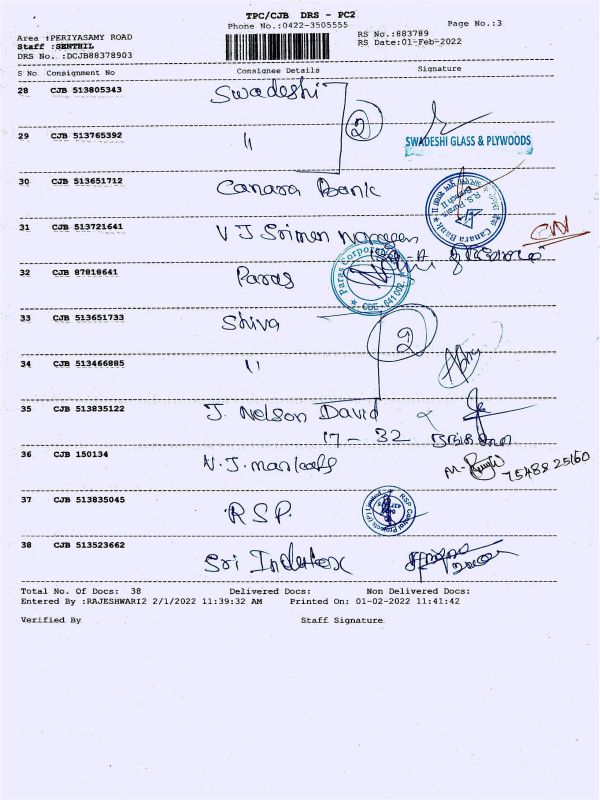 TPC/CJB DRS - PC2
Phone No.:0422-3505555
Page No.:3
Area :PERIYASAMY ROAD
RS No.:883789
Staff :SENTHIL
RS Date:01-Feb-2022
DRS No. :DCJB88378903
S No Consignment No Consignee Details Signature
28 CJB 513805343 Swadeshi
2
29 CJB 513765392 "
SWADESHI GLASS & PLYWOODS
30 CJB 513651712 Canara Bank
Canara Bank
31 CJB 513721641 V J Srimen Narayen
32 CJB 87818641 Paras
Paras Corporation
CBE - 641 002.
33 CJB 513651733 Shiva
2
34 CJB 513466885 "
35 CJB 513835122 J. Nelson David
17 - 32
36 CJB 150134
75488 25160
37 CJB 513835045 R.S.P.
38 CJB 513523662 Sri
Total No. Of Docs: 38 Delivered Docs: Non Delivered Docs:
Entered By :RAJESHWARI2 2/1/2022 11:39:32 AM Printed On: 01-02-2022 11:41:42
Verified By Staff Signature